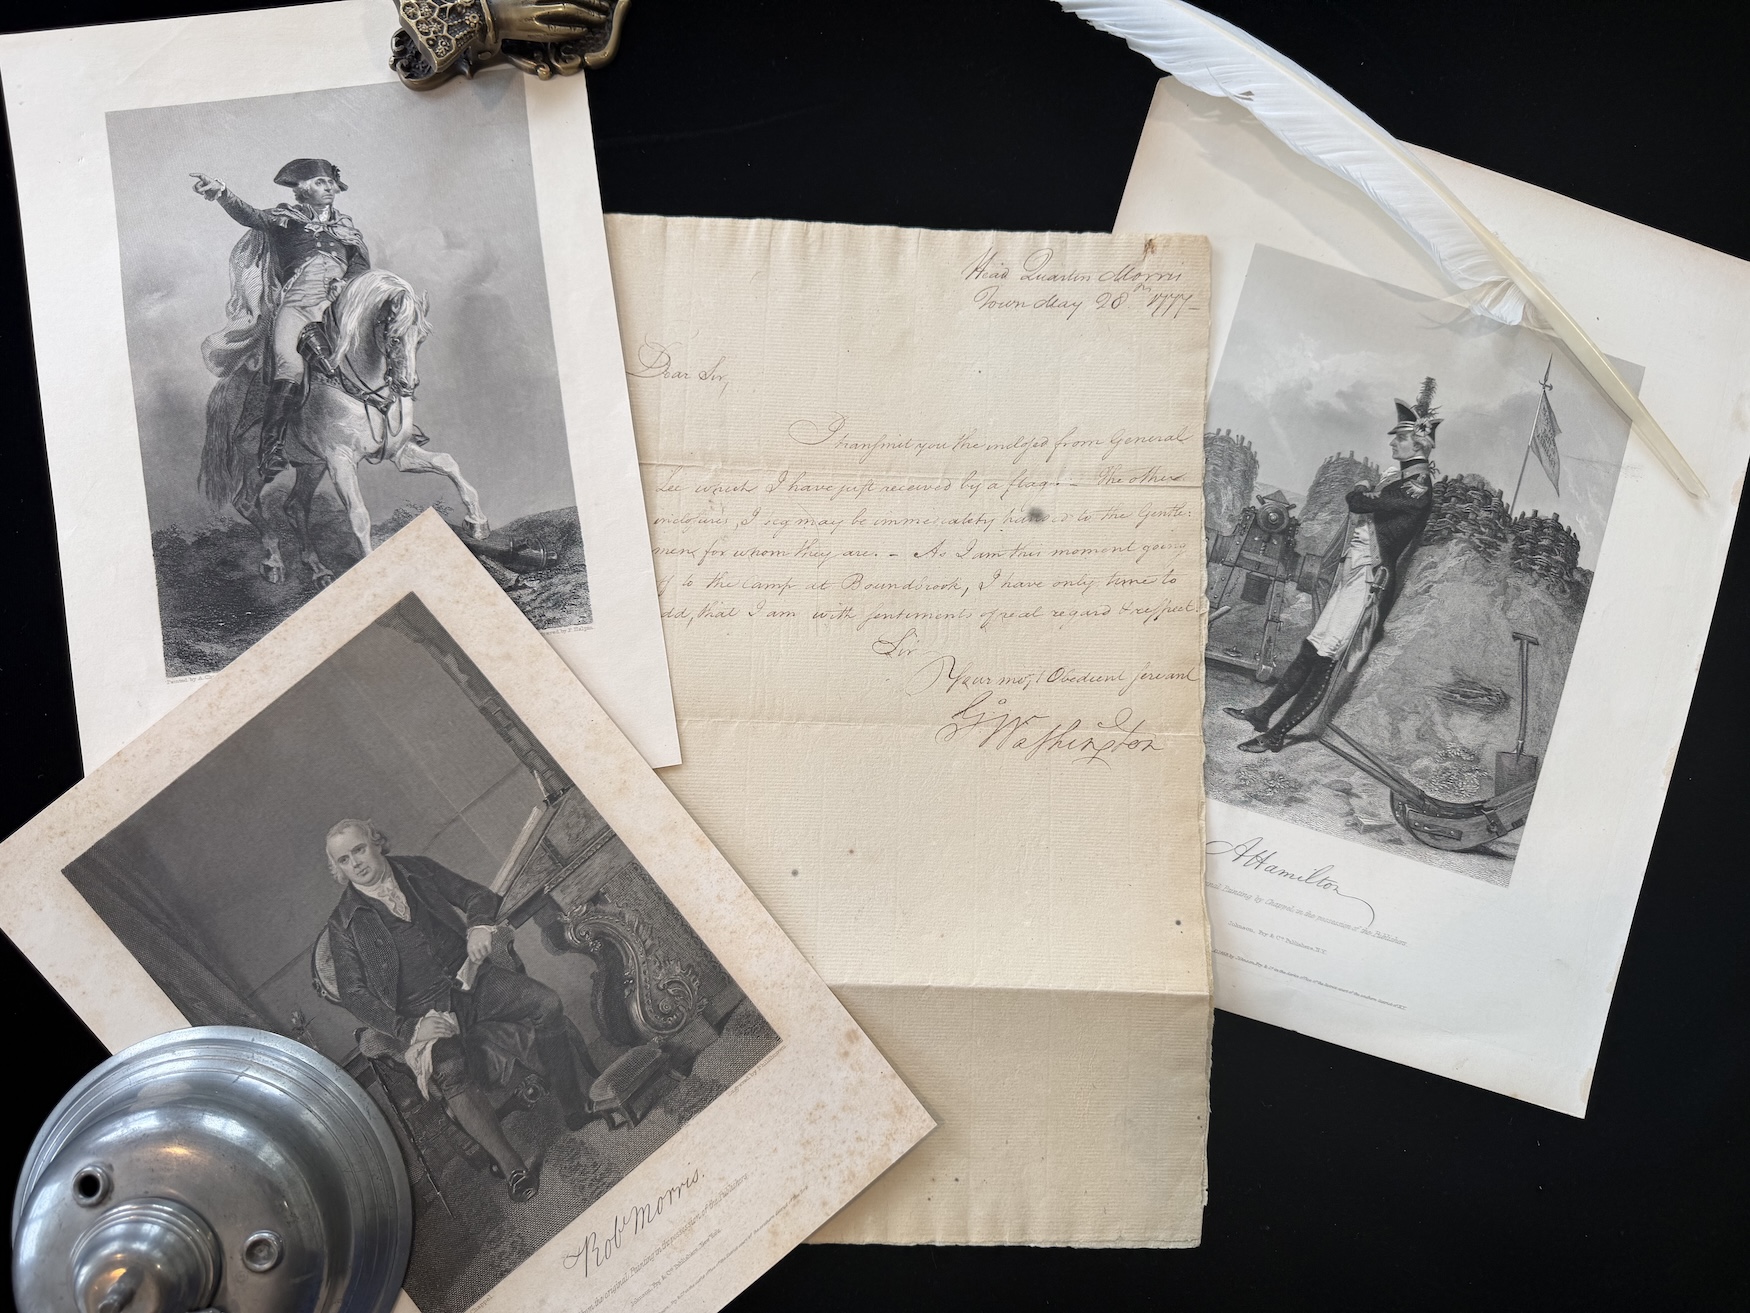 Head Quarters Morris
Town May 28th 1777
Dear Sir,
I transmit you the inclosed from General
Lee which I have just received by a flag. The other
inclosures, I beg may be immediately handed to the Gentle:
men, for whom they are. – As I am this moment going
to the Camp at Boundbrook, I have only time to
dd, that I am with sentiments of real regard & respect
Sir
Your most Obedient Servant
G:o Washington
A Hamilton
Painting by Chappel, in the possession of the Publishers
Johnson, Fry & Co. Publishers, N.Y.
Painted by A. C
F. Halpin
Robt Morris.
the original Painting in the possession of the Publishers
Johnson, Fry & Co. Publishers, New York.